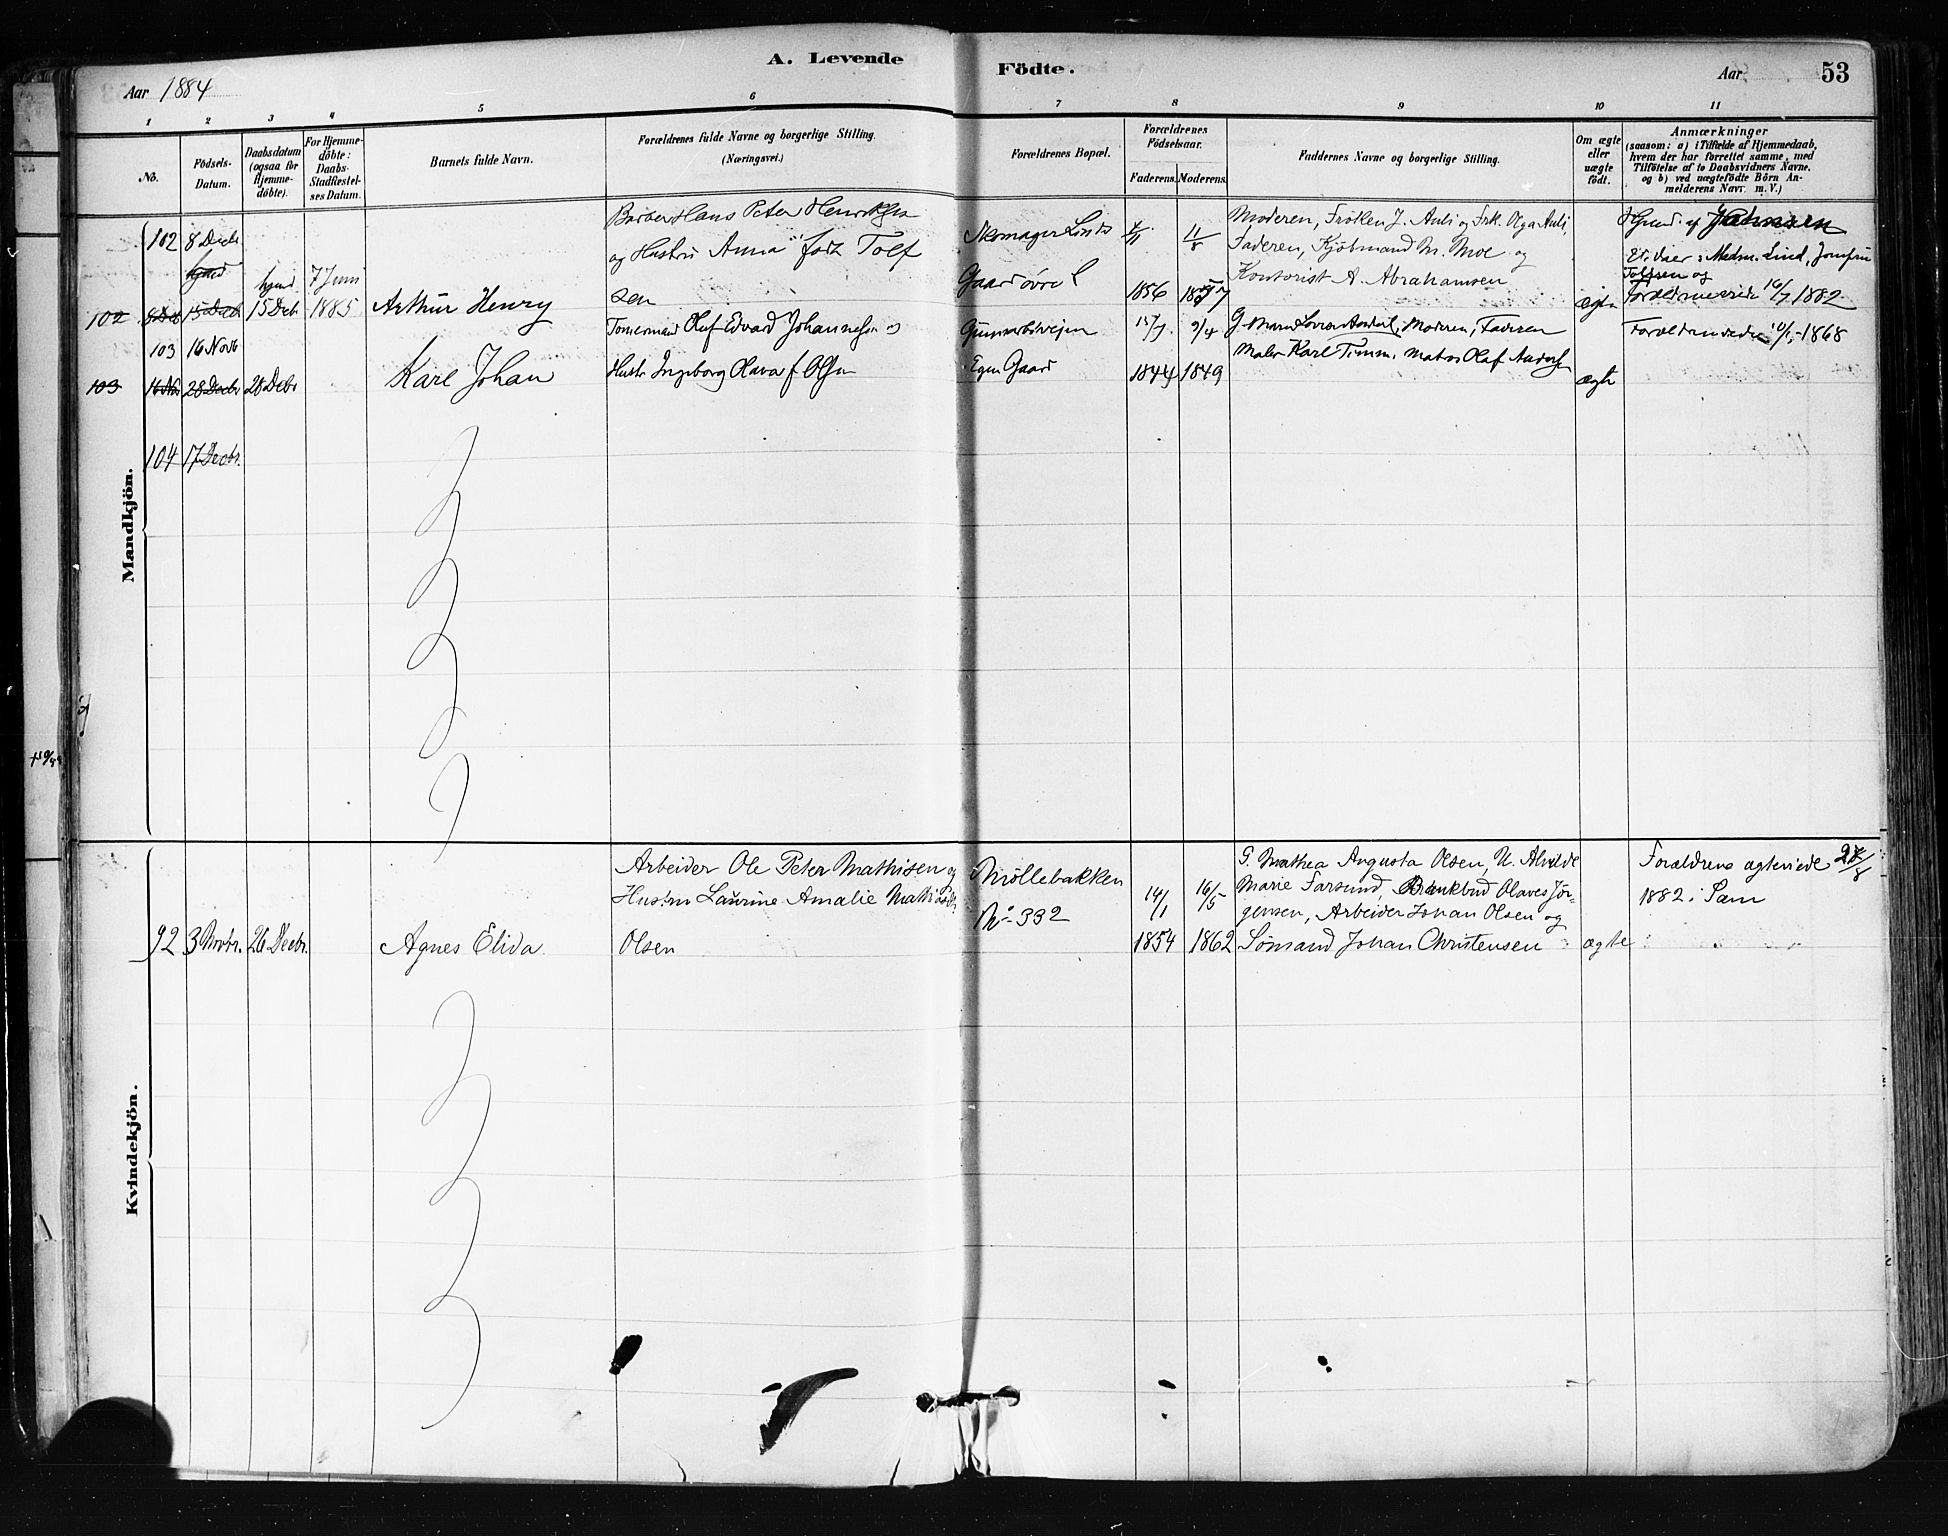 A. Levende Födte.
53
Aar 1884
Aar
1 2 3 4 5 6 7 8 9 10 11
No.
Födsels-Datum.
Daabsdatum (ogsaa för Hjemme-döbte).
For Hjemme-döbte: Daabs-Stadfæstel-ses Datum.
Barnets fulde Navn.
Forældrenes fulde Navne og borgerlige Stilling.
(Næringsvei.)
Forældrenes Bopæl.
Forældrenes Födselsaar.
Faderens. Moderens.
Faddernes Navne og borgerlige Stilling.
Om ægte eller uægte födt.
Anmærkninger
(saasom: a) i Tilfælde af Hjemmedaab,
hvem der har forrettet samme, med
Tilföielse af to Daabsvidners Navne,
og b) ved uægtefödte Börn An-
melderens Navn. m. V.)
Mandkjön.
102 8 Decbr
hjmd
102 15 Decb
hjmd
15 Deb
7 Juni
1885
Arthur Henry
Barber Hans Peter Henriksen
og Hustru Anna født Tolf
sen
Skomager Linds
Gaard øvre
1856
11/5
1857
Moderen, Frøken J. Auli og Frk. Olga Auli,
Faderen, Kjöbmand M. Moe og
Kontorist A. Abrahamsen
ægte
Hjmd. af
Et. Vaer: Madm. Lind, Jomfru
Tolfsen og
Forældr viede 16/7 1882
103 16 Novb
103 28 Decbr 28 Debr
Karl Johan
Tømermand Oluf Edvard Johannesen og
Hustr Ingeborg Olava f. Olsen
Egen Gaard
15/7
1844
9/4
1849
Moderen, Faderen
Maler Karl Timm, Matros Olaf Anders
ægte
Forældr viede 1868
104 17 Decbr.
Kvindekjön.
92 3 Novbr. 26 Decbr.
Agnes Elida
Arbeider Ole Peter Mathisen og
Hustru Laurine Amalie
Olsen
Möllebakken
No 332
14/1
1854
16/5
1862
G. Mathea Augusta Olsen, U. Alvilde
Marie Farsund, Olaves Jör-
gensen, Arbeider Johan Olsen og
Sömand Johan Christensen
ægte
Forældrene ægteviede
1882 i Sam